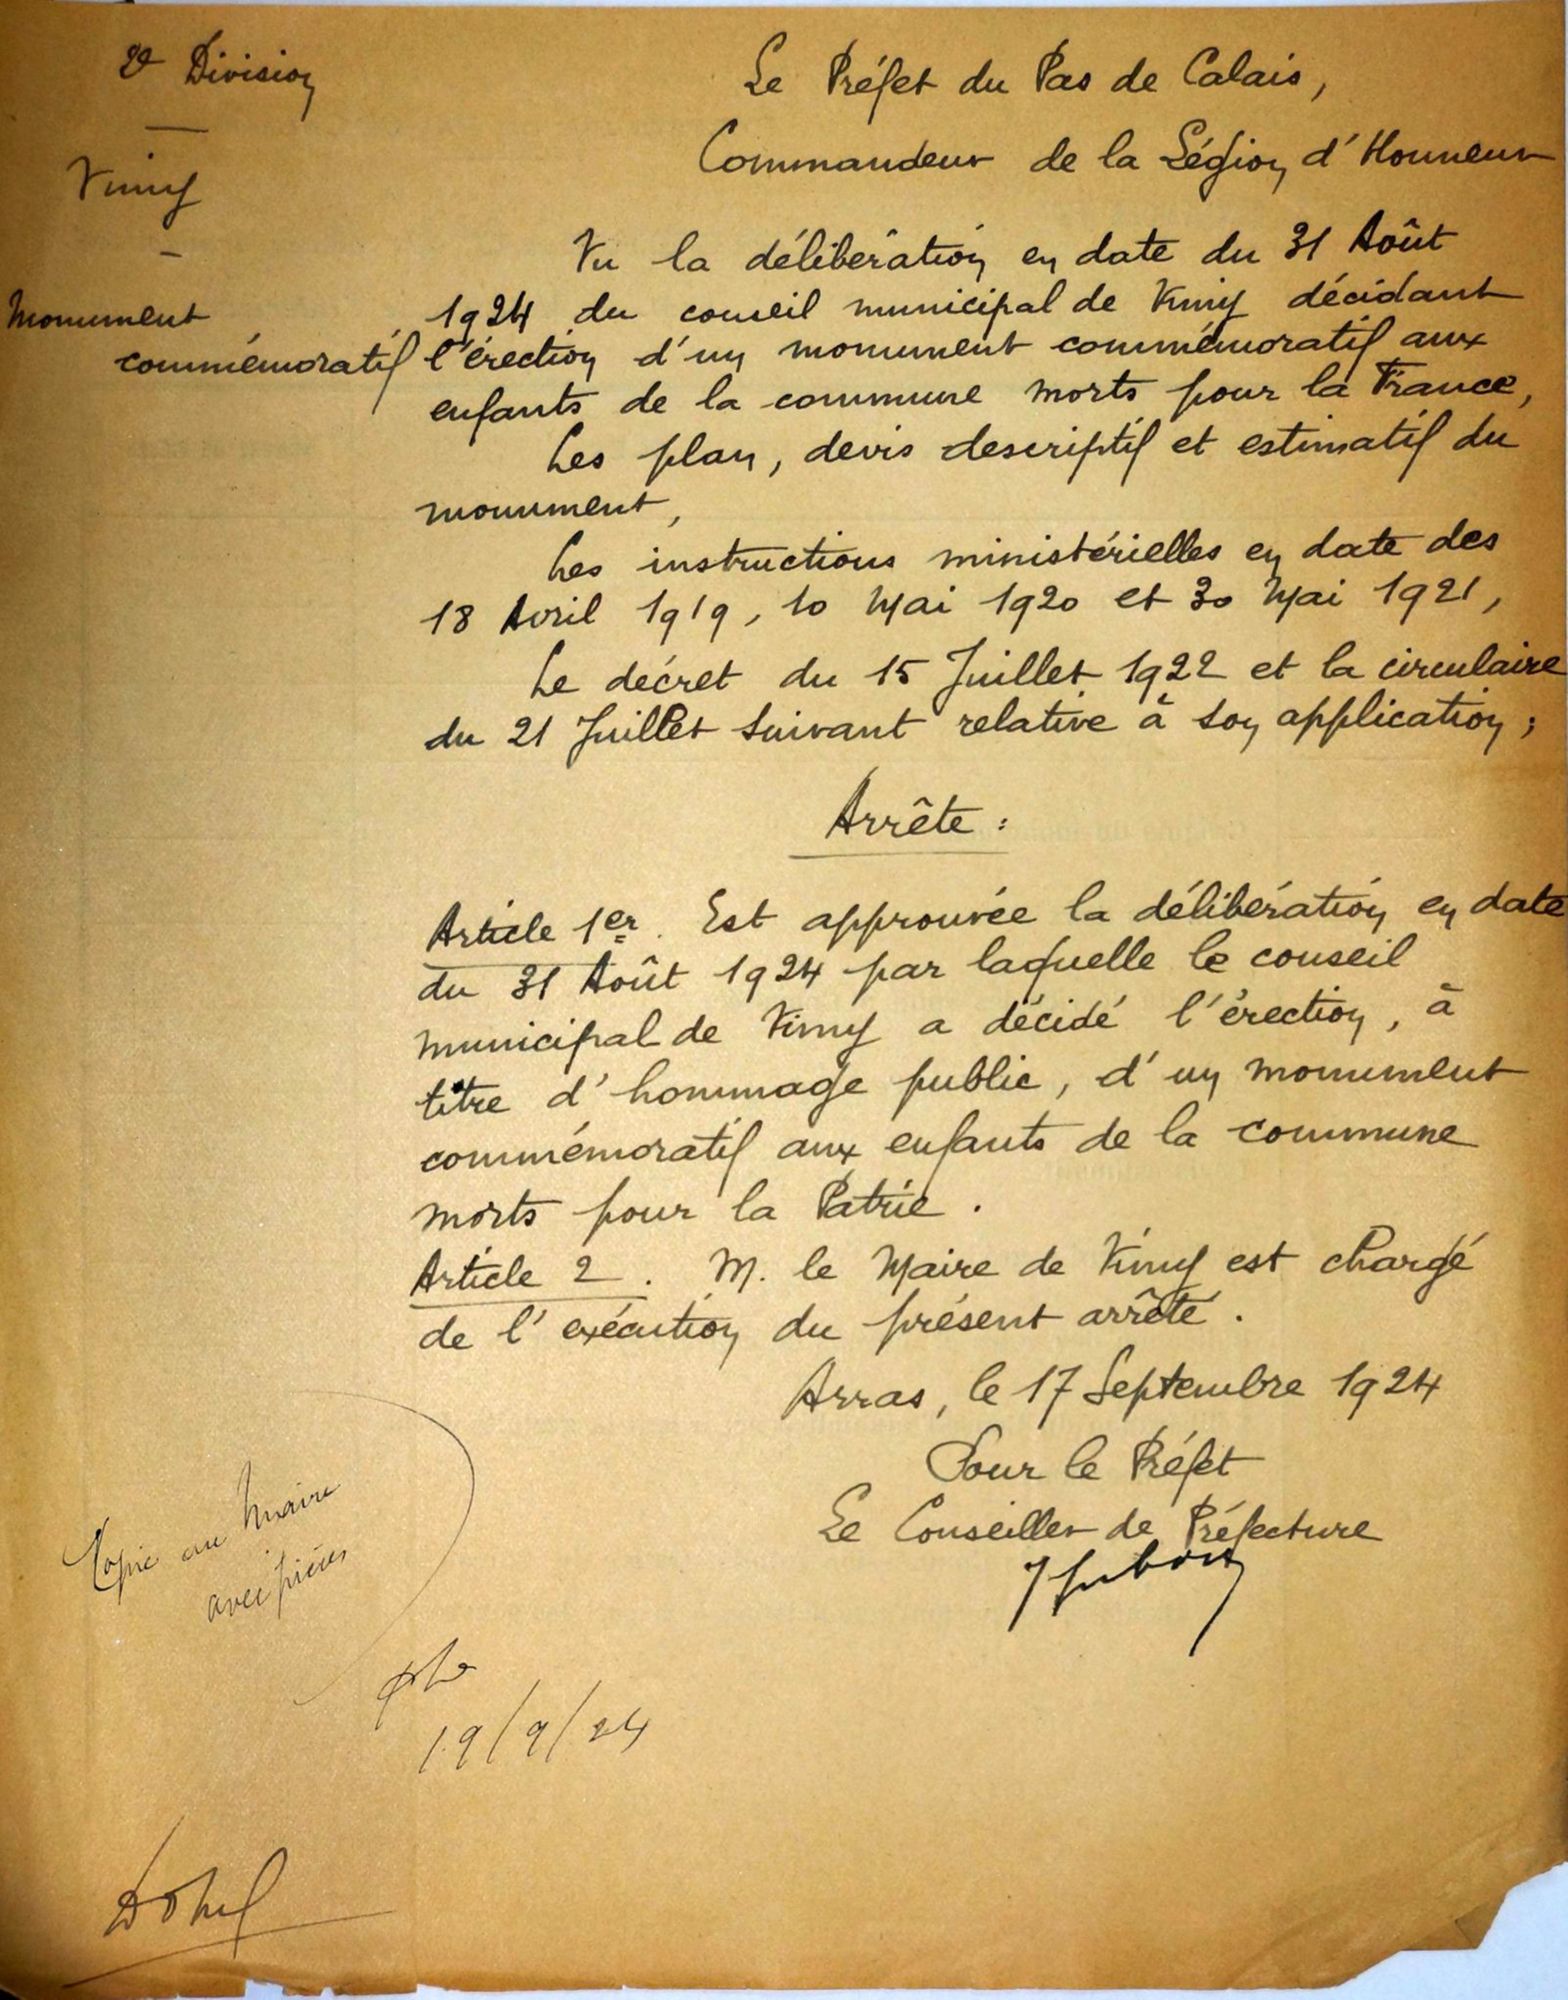 2e Division
Vimy
Monument
commémoratif
Le Préfet du Pas de Calais,
Commandeur de la Légion d'Honneur
Vu la délibération en date du 31 Août
1924 du conseil municipal de Vimy décidant
l'érection d'un monument commémoratif aux
enfants de la commune morts pour la France,
Les plan, devis descriptif et estimatif du
monument,
Les instructions ministérielles en date des
18 Avril 1919, 10 Mai 1920 et 30 Mai 1921,
Le décret du 15 Juillet 1922 et la circulaire
du 21 Juillet suivant relative à son application;
Arrête :
Article 1er. Est approuvée la délibération en date
du 31 Août 1924 par laquelle le conseil
municipal de Vimy a décidé l'érection, à
titre d'hommage public, d'un monument
commémoratif aux enfants de la commune
morts pour la Patrie.
Article 2. M. le Maire de Vimy est chargé
de l'exécution du présent arrêté.
Arras, le 17 Septembre 1924
Pour le Préfet
Le Conseiller de Préfecture
Copie au Maire
avec pièces
19/9/24